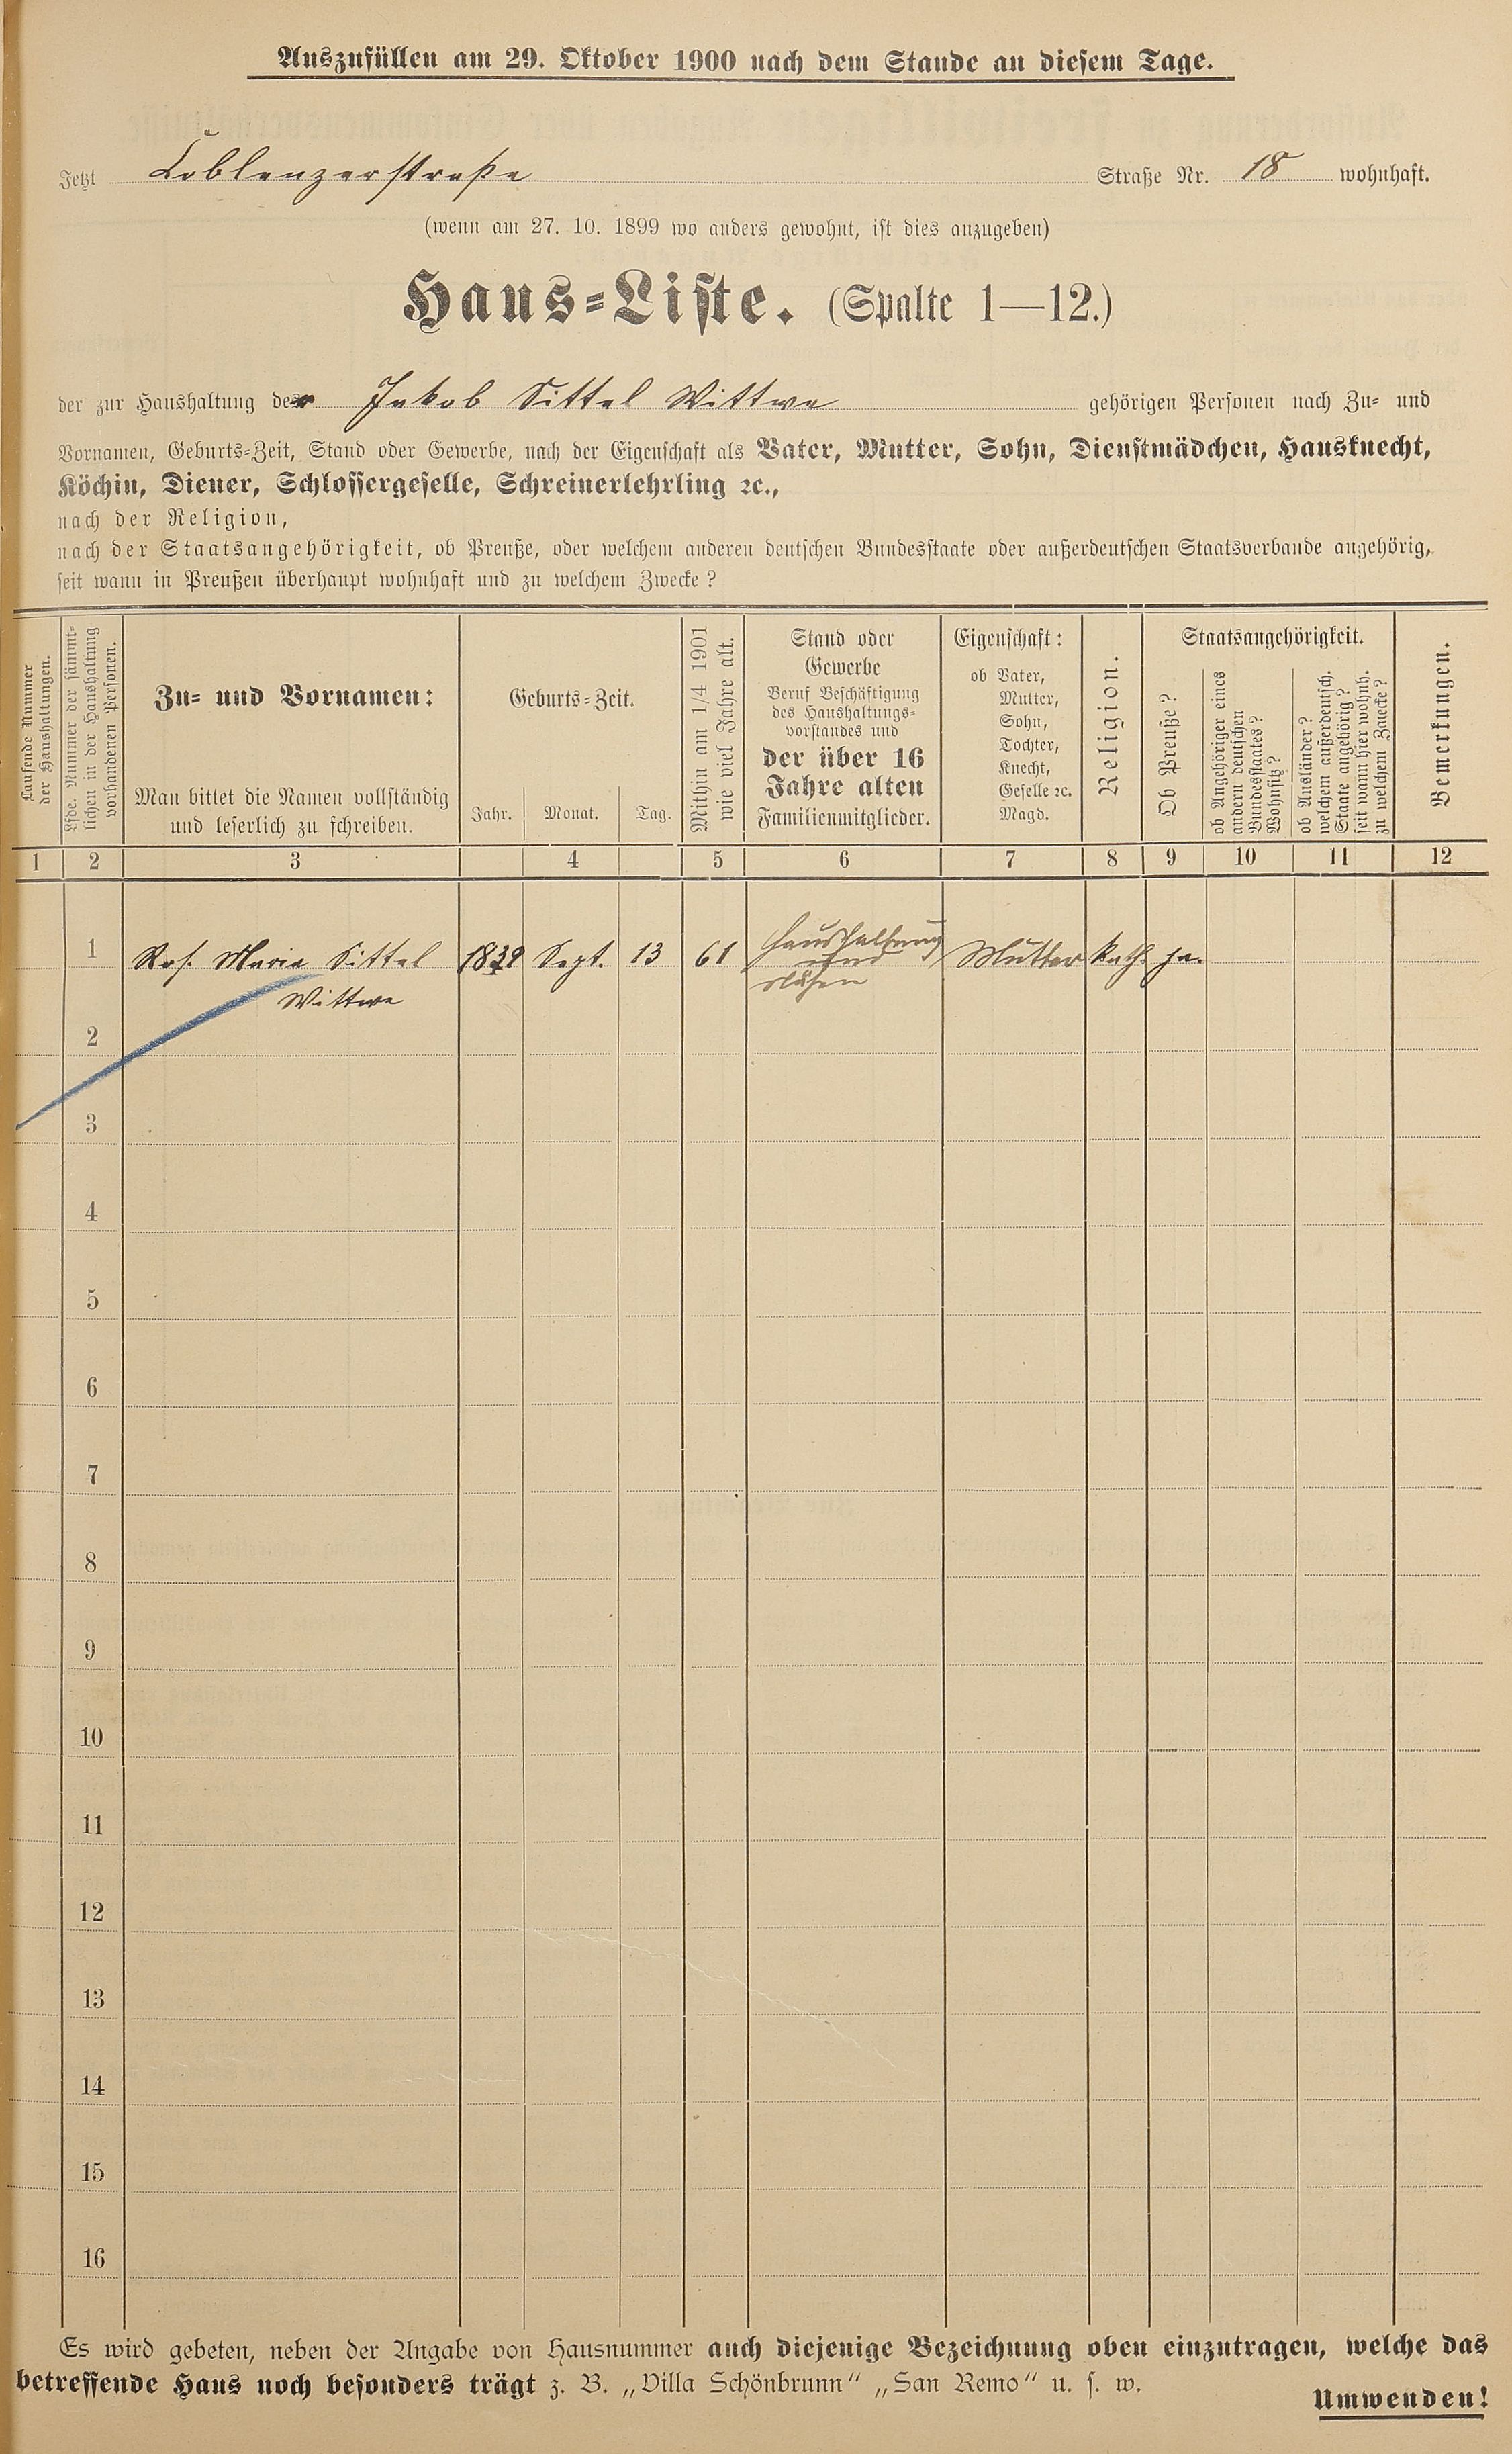 Auszufüllen am 29. Oktober 1900 nach dem Stande an diesem Tage.
Jetzt Coblenzerstraße Straße Nr. 18 wohnhaft.
(wenn am 27. 10. 1899 wo anders gewohnt, ist dies anzugeben)
Haus-Liste. (Spalte 1—12.)
der zur Haushaltung der Jakob Sittel Wittwe gehörigen Personen nach Zu- und
Vornamen, Geburts-Zeit, Stand oder Gewerbe, nach der Eigenschaft als Vater, Mutter, Sohn, Dienstmädchen, Hausknecht,
Köchin, Diener, Schlossergeselle, Schreinerlehrling ꝛc.,
nach der Religion,
nach der Staatsangehörigkeit, ob Preuße, oder welchem anderen deutschen Bundesstaate oder außerdeutschen Staatsverbande angehörig,
seit wann in Preußen überhaupt wohnhaft und zu welchem Zwecke?
Laufende Nummer
der Haushaltungen.
Lfde. Nummer der sämmt-
lichen in der Haushaltung
vorhandenen Personen.
Zu- und Vornamen:
Man bittet die Namen vollständig
und leserlich zu schreiben.
Geburts-Zeit.
Jahr. Monat. Tag.
Mithin am 1/4 1901
wie viel Jahre alt.
Stand oder
Gewerbe
Beruf Beschäftigung
des Haushaltungs-
vorstandes und
der über 16
Jahre alten
Familienmitglieder.
Eigenschaft:
ob Vater,
Mutter,
Sohn,
Tochter,
Knecht,
Geselle ꝛc.
Magd.
Religion.
Staatsangehörigkeit.
Ob Preuße?
ob Angehöriger eines
andern deutschen
Bundesstaates?
Wohnsitz?
ob Ausländer?
welchem außerdeutsch.
Staate angehörig?
seit wann hier wohnh.
zu welchem Zwecke?
Bemerkungen.
1 2 3 4 5 6 7 8 9 10 11 12
1 Ros. Maria Sittel 1839 Sept. 13 61 Haushaltung Mutter Kath. ja.
Wittwe und
nähen
2
3
4
5
6
7
8
9
10
11
12
13
14
15
16
Es wird gebeten, neben der Angabe von Hausnummer auch diejenige Bezeichnung oben einzutragen, welche das
betreffende Haus noch besonders trägt z. B. „Villa Schönbrunn“ „San Remo“ u. s. w.
Umwenden!